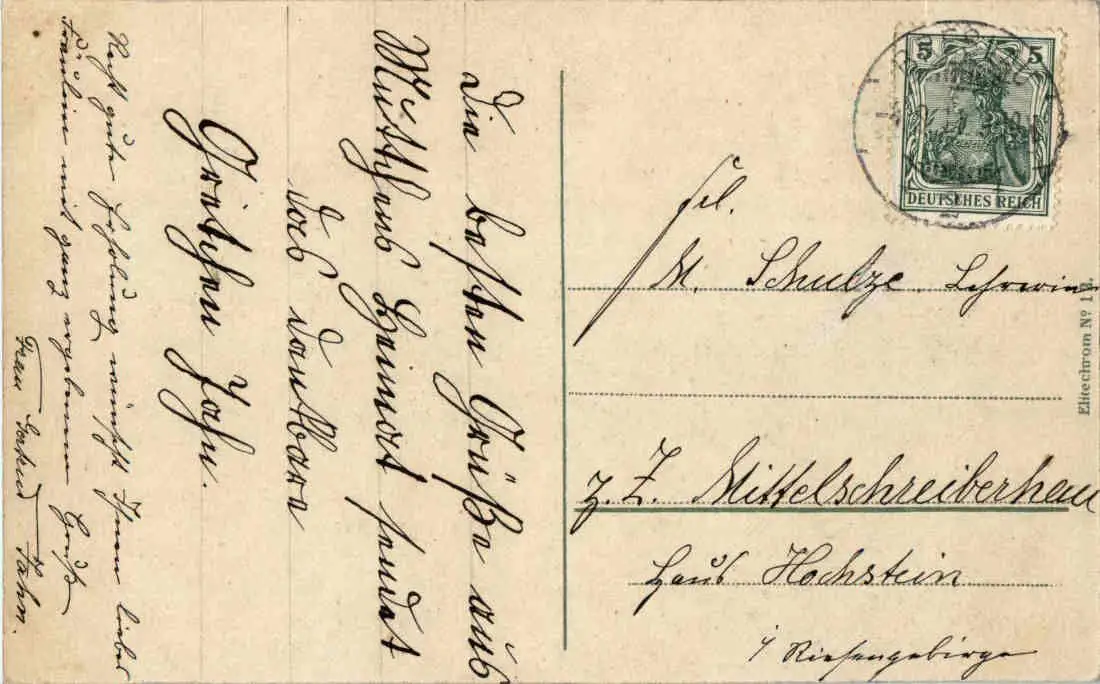 Die besten Grüße aus
Muttchens Heimat sendet
das dankbare
Gretchen Jahn.
Recht gute Erholung wünscht Ihnen liebes
Fräulein mit ganz ergebenem Gruß
Frau Jahn.
5 5
DEUTSCHES REICH
Frl.
M. Schulze. Lehrerin
z. Z. Mittelschreiberhau
Haus Hochstein
i/ Riesengebirge
Elitechrom Nº 1